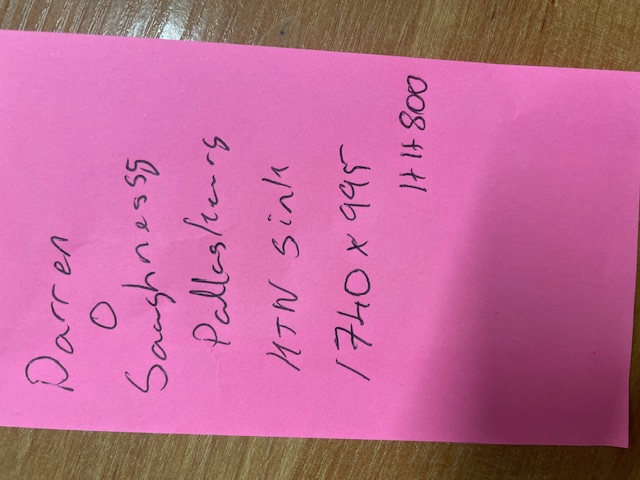 Darren
O
Saughnessy
Pallaskenry
KTN Sink
1740 x 995
HH800